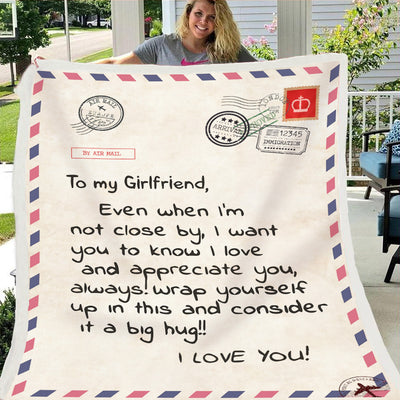 AIR MAIL
ARRIVED
12345
IMMIGRATION
BY AIR MAIL
To my Girlfriend,
Even when i'm
not close by, I want
you to know I love
and appreciate you,
always! wrap yourself
up in this and consider
it a big hug!!
I LOVE YOU!